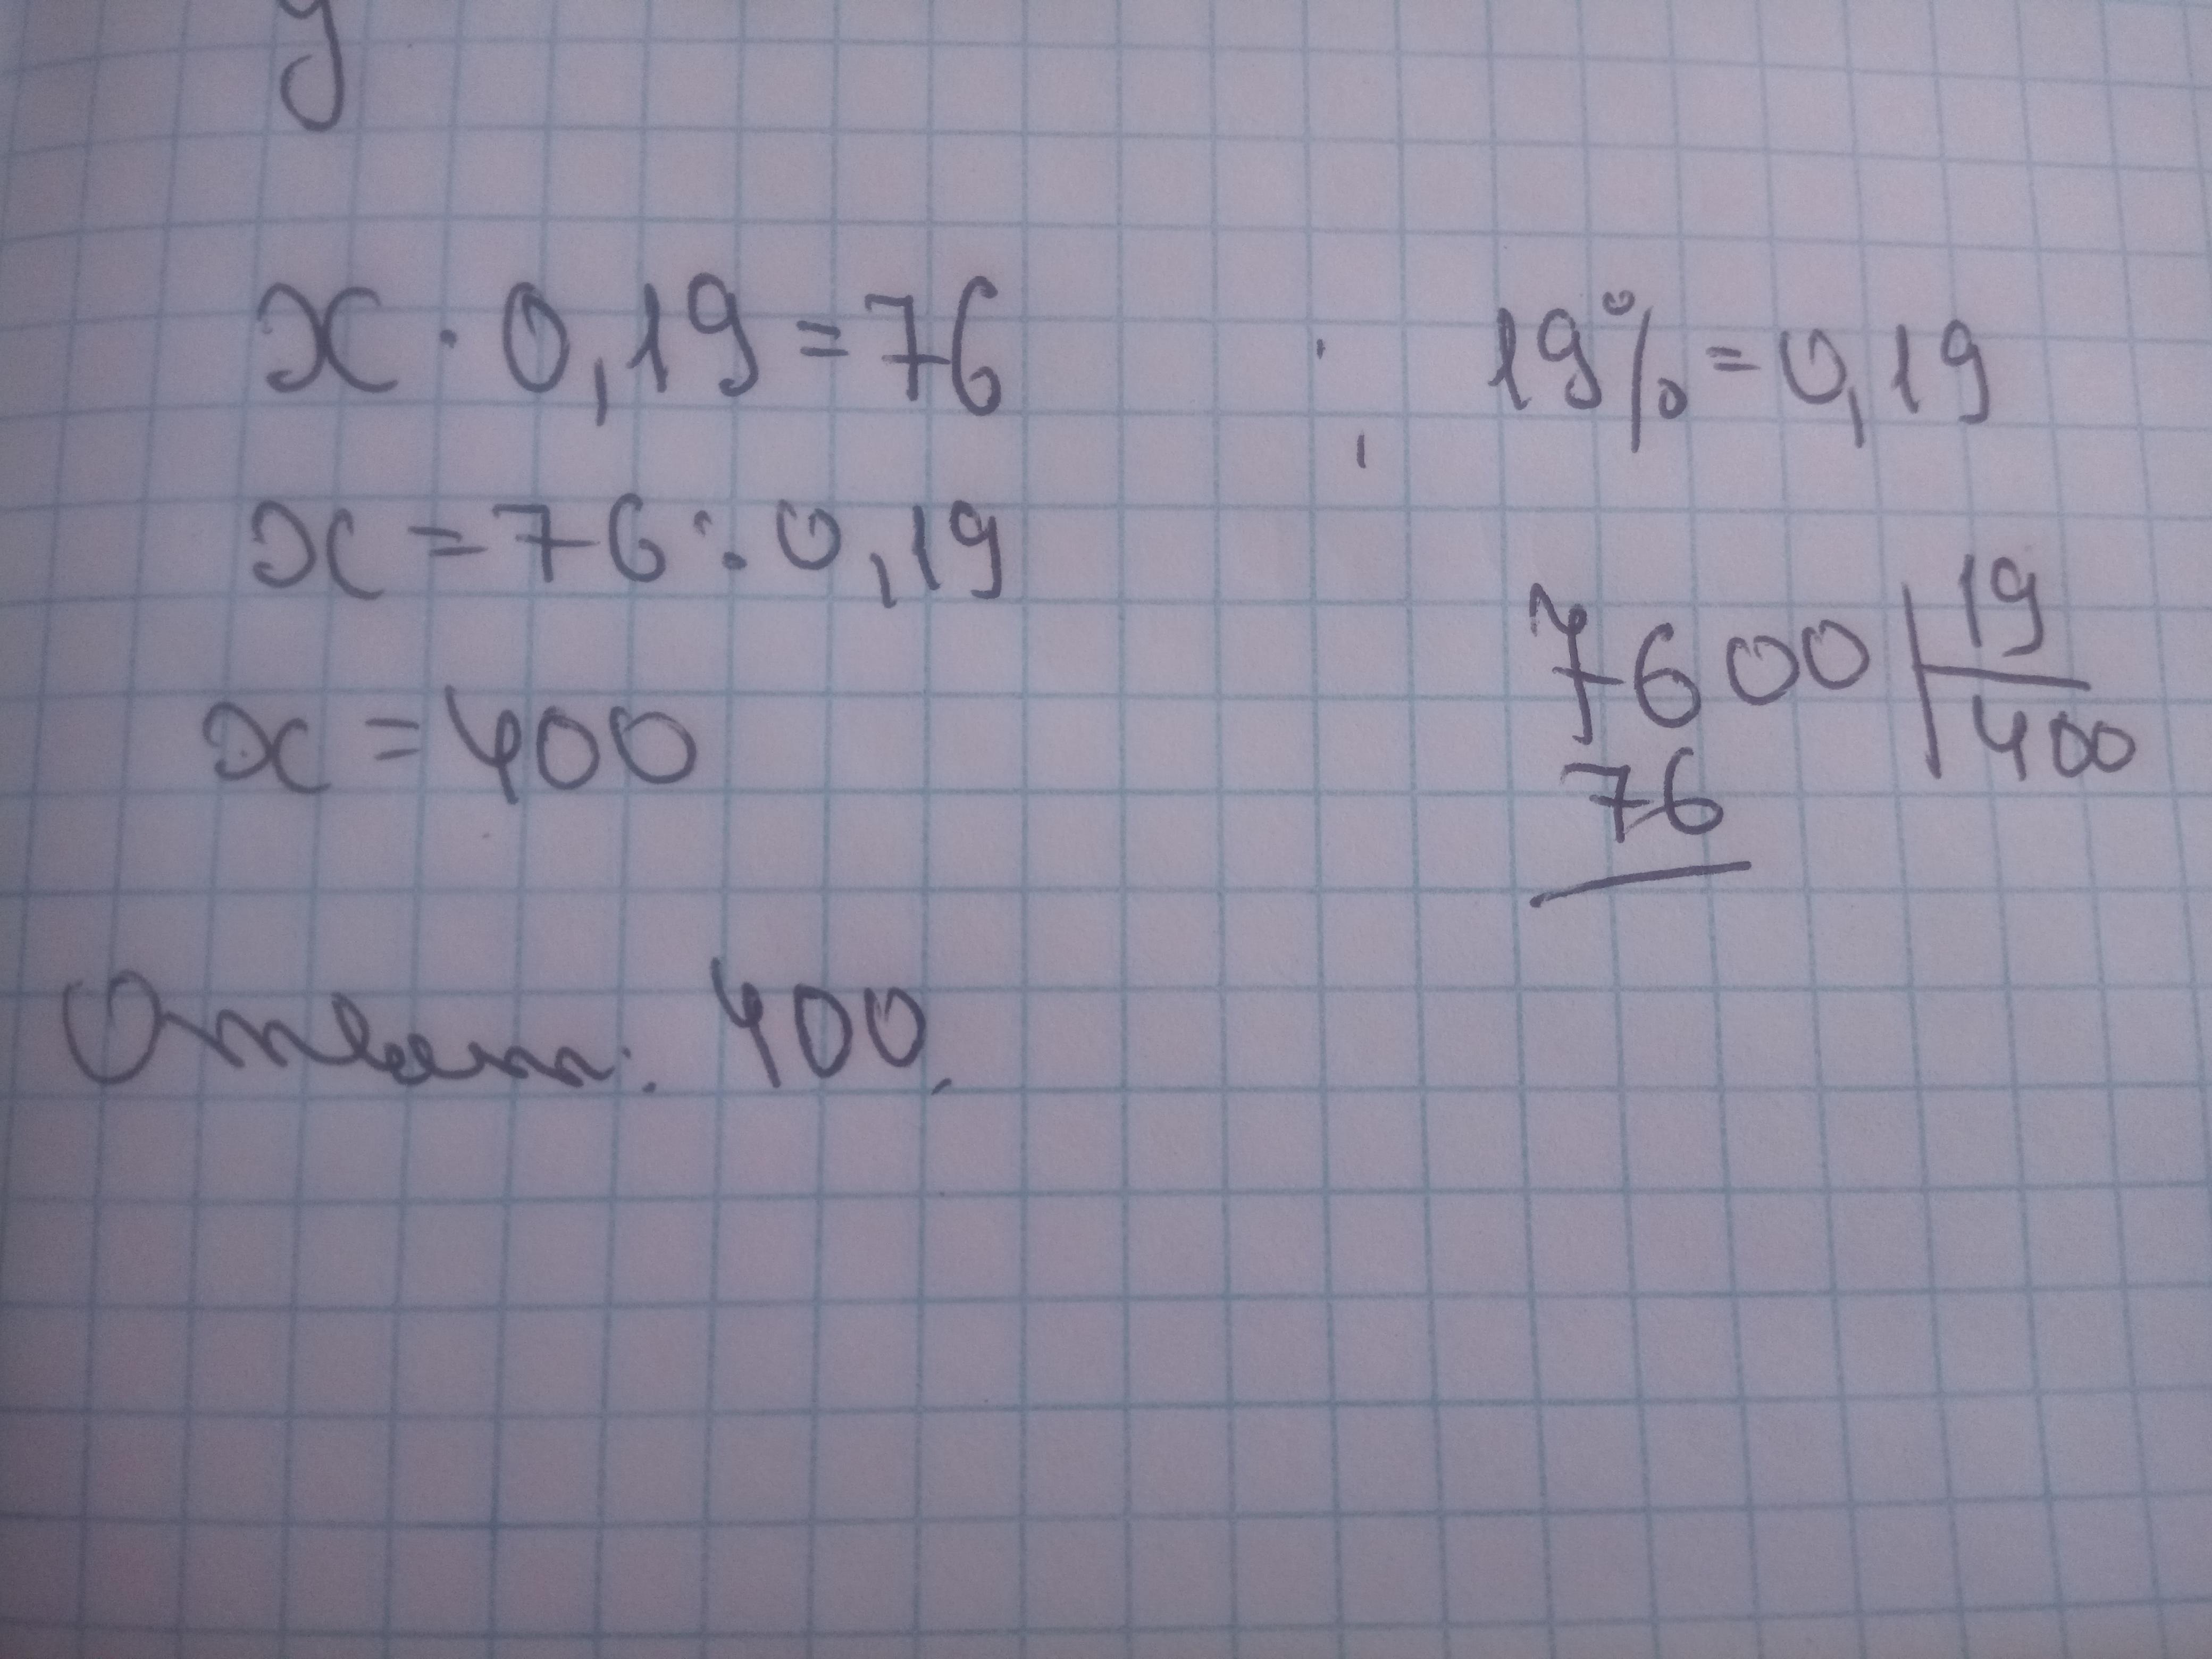 x · 0,19 = 76
x = 76 : 0,19
x = 400
Ответ: 400.
19% = 0,19
7600 | 19
76 | 400